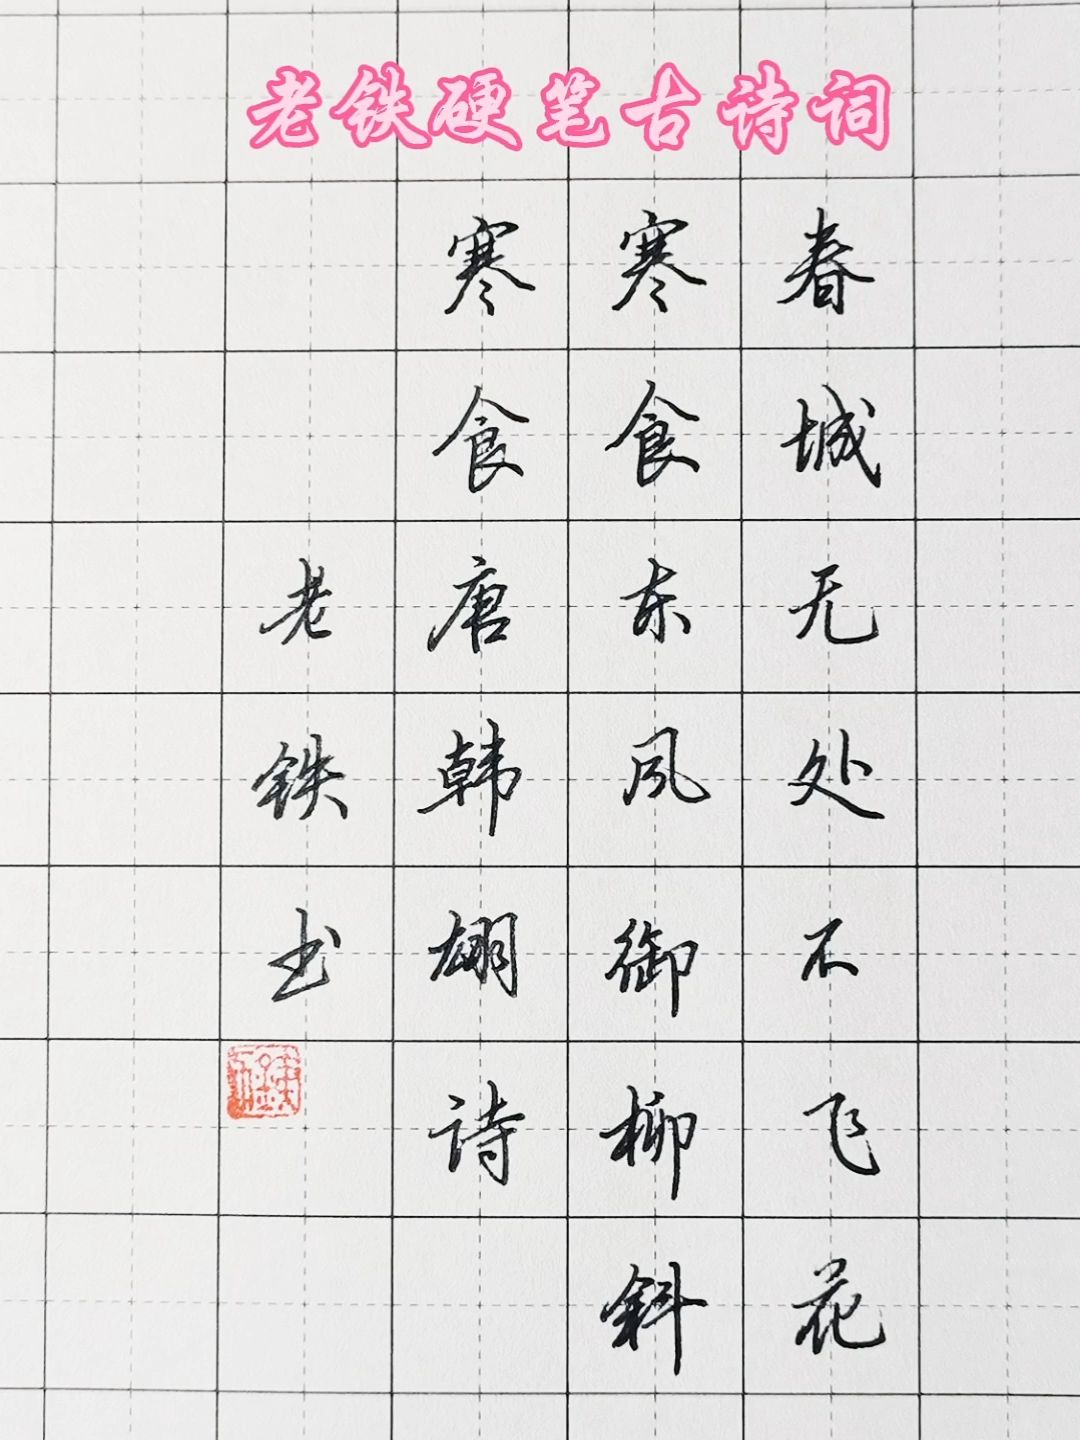 老铁硬笔古诗词
春城无处不飞花
寒食东风御柳斜
寒食唐韩翃诗
老铁书